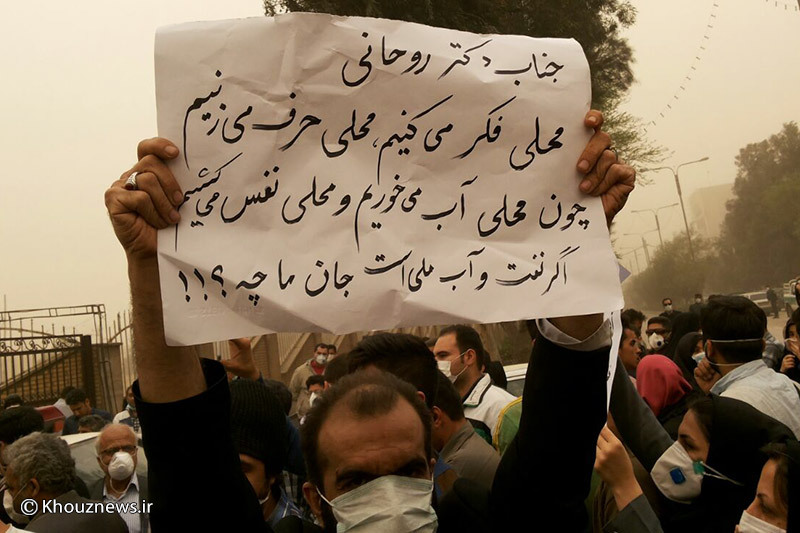 جناب دکتر روحانی
محلی فکر می‌کنیم، محلی حرف می‌زنیم
چون محلی آب می‌خوریم و محلی نفس می‌کشیم
اگر نفت و آب ملی است جان ما چه؟!!
© Khouznews.ir